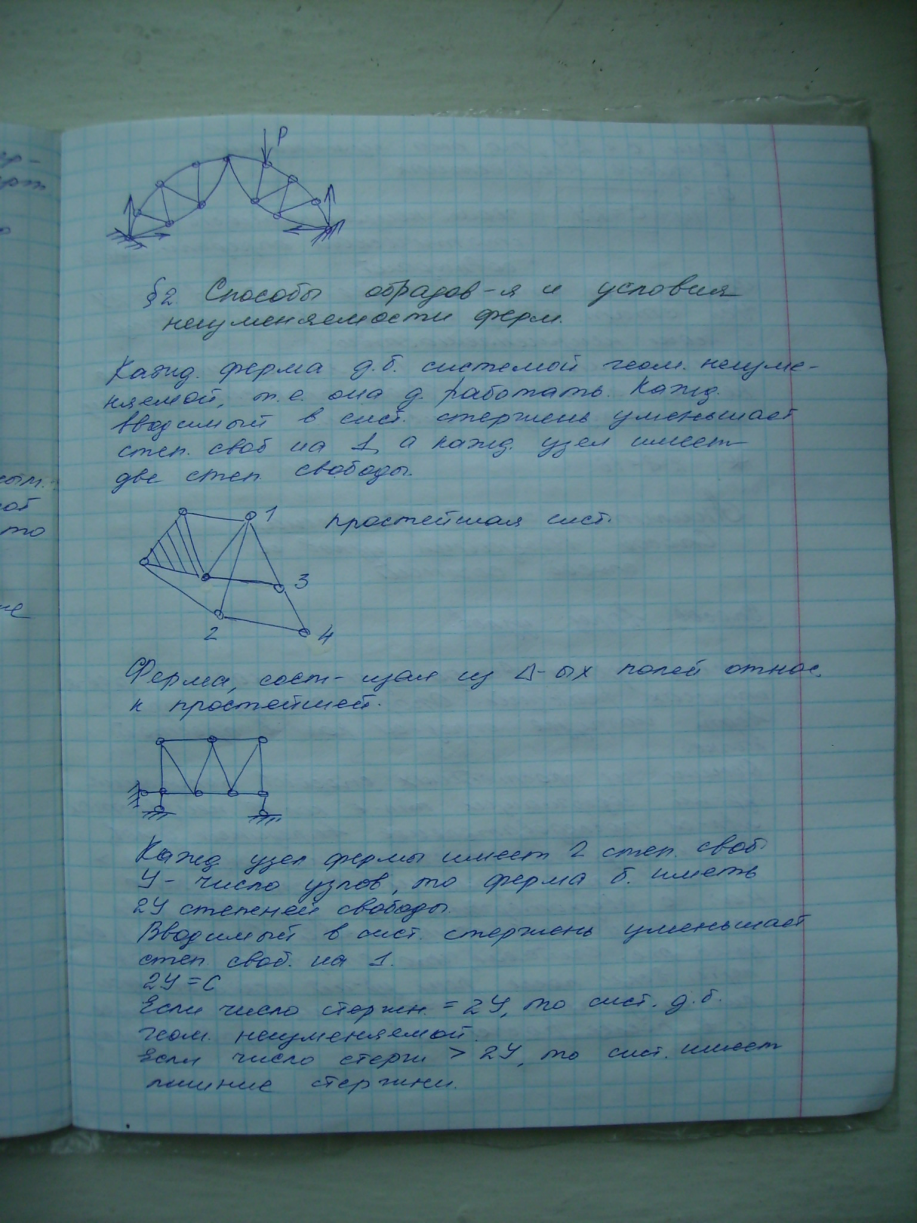 P
§2 Способы образов-я и условия
неизменяемости ферм.
Кажд. ферма д.б. системой геом. неизме-
няемой, т.е. она д. работать. Кажд.
вводимый в сист. стержень уменьшает
степ. своб на 1, а кажд. узел имеет
две степ свободы.
1 простейшая сист.
3
2
4
Ферма, сост-щая из Δ-ых полей относ.
к простейшей.
Кажд узел фермы имеет 2 степ. своб.
У - число узлов, то ферма б. иметь
2У степеней свободы
Вводимый в сист. стержень уменьшает
степ своб. на 1.
2У = С
Если число стержн. = 2У, то сист. д.б.
геом. неизменяемой.
Если число стержн > 2У, то сист. имеет
лишние стержни.